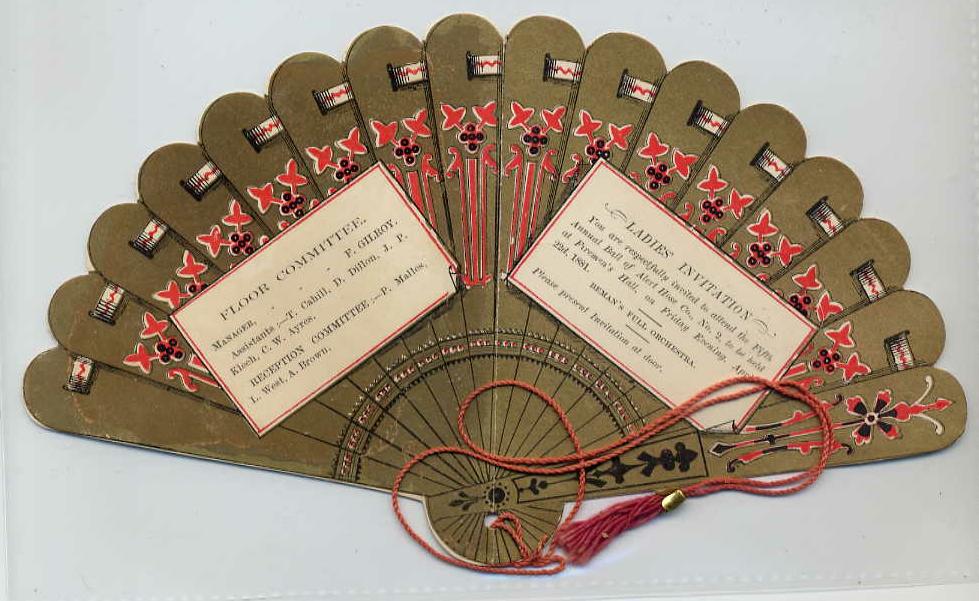 FLOOR COMMITTEE.
MANAGER, - - - P. GILROY.
Assistants—T. Cahill, D. Dillon, J. P.
Kisch, C. W. Ayres.
RECEPTION COMMITTEE,—P. Mallos,
L. West, A. Brown.
LADIES' INVITATION
You are respectfully invited to attend the Fifth
Annual Ball of Alert Hose Co., No. 2, to be held
at Firemen's Hall, on Friday Evening, Apr
22d, 1881.
BEMAN'S FULL ORCHESTRA.
Please present Invitation at door.